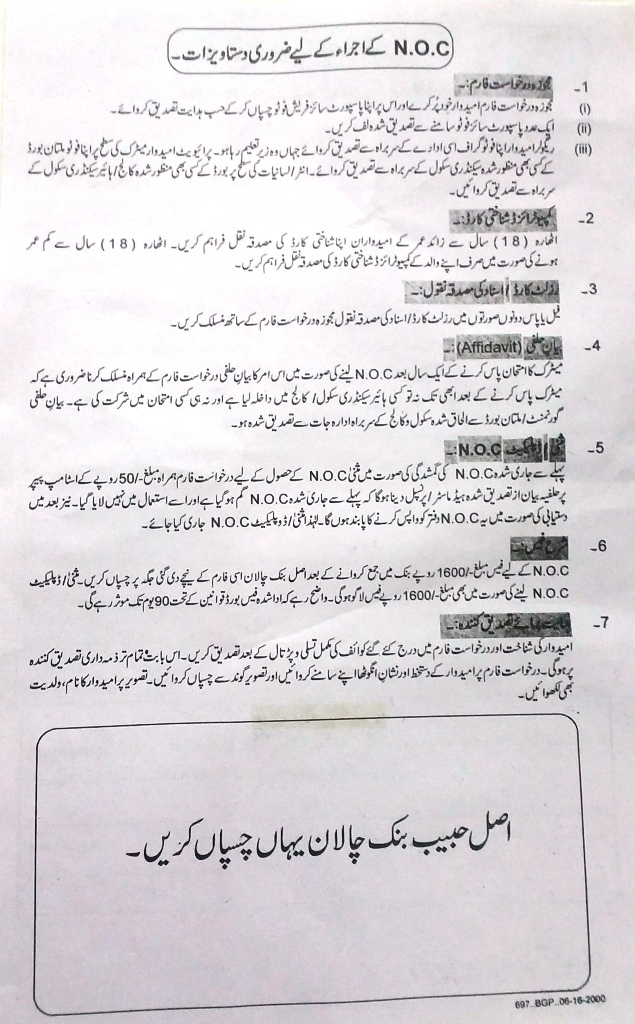 N.O.C کے اجراء کے لیے ضروری دستاویزات۔
1- مجوزہ درخواست فارم:۔
(i) مجوزہ درخواست فارم امیدوار خود پُر کرے اور اس پر اپنا پاسپورٹ سائز فریش فوٹو چسپاں کر کے حسب ہدایت تصدیق کروائے۔
(ii) ایک عدد پاسپورٹ سائز فوٹو سامنے سے تصدیق شدہ لف کریں۔
(iii) ریگولر امیدوار اپنا فوٹو گراف اسی ادارے کے سربراہ سے تصدیق کروائے جہاں وہ زیر تعلیم رہا ہو۔ پرائیویٹ امیدوار میٹرک کی سطح پر اپنا فوٹو ملتان بورڈ
کے کسی بھی منظور شدہ سیکنڈری سکول کے سربراہ سے تصدیق کروائے۔ انٹر/لسانیات کی سطح پر بورڈ کے کسی بھی منظور شدہ کالج/ہائیر سیکنڈری سکول کے
سربراہ سے تصدیق کروائیں۔
2- کمپیوٹرائزڈ شناختی کارڈ:۔
اٹھارہ (18) سال سے زائد عمر کے امیدواران اپنا شناختی کارڈ کی مصدقہ نقل فراہم کریں۔ اٹھارہ (18) سال سے کم عمر
ہونے کی صورت میں صرف اپنے والد کے کمپیوٹرائزڈ شناختی کارڈ کی مصدقہ نقل فراہم کریں۔
3- رزلٹ کارڈ/اسناد کی مصدقہ نقول:۔
فیل یا پاس دونوں صورتوں میں رزلٹ کارڈ/اسناد کی مصدقہ نقول مجوزہ درخواست فارم کے ساتھ منسلک کریں۔
4- بیان حلفی (Affidavit):۔
میٹرک کا امتحان پاس کرنے کے ایک سال بعد N.O.C لینے کی صورت میں اس امر کا بیان حلفی درخواست فارم کے ہمراہ منسلک کرنا ضروری ہے کہ
میٹرک پاس کرنے کے بعد ابھی تک نہ تو کسی ہائیر سیکنڈری سکول/کالج میں داخلہ لیا ہے اور نہ ہی کسی امتحان میں شرکت کی ہے۔ بیان حلفی
گورنمنٹ/ملتان بورڈ سے الحاق شدہ سکول و کالج کے سربراہ ادارہ جات سے تصدیق شدہ ہو۔
5- مثنیٰ/ڈوپلیکیٹ N.O.C:۔
پہلے سے جاری شدہ N.O.C کی گمشدگی کی صورت میں مثنیٰ N.O.C کے حصول کے لیے درخواست فارم ہمراہ مبلغ -/50 روپے کے اسٹامپ پیپر
پر حلفیہ بیان از تصدیق شدہ ہیڈ ماسٹر/پرنسپل دینا ہوگا کہ پہلے سے جاری شدہ N.O.C گم ہوگیا ہے اور اسے استعمال میں نہیں لایا گیا۔ نیز بعد میں
دستیابی کی صورت میں یہ N.O.C دفتر کو واپس کرنے کا پابند ہوں گا۔ لہٰذا مثنیٰ/ڈوپلیکیٹ N.O.C جاری کیا جائے۔
6- شرح فیس:۔
N.O.C کے لیے فیس مبلغ -/1600 روپے بنک میں جمع کروانے کے بعد اصل بنک چالان اسی فارم کے نیچے دی گئی جگہ پر چسپاں کریں۔ مثنیٰ/ڈوپلیکیٹ
N.O.C لینے کی صورت میں بھی مبلغ -/1600 روپے فیس لاگو ہوگی۔ واضح رہے کہ ادا شدہ فیس بورڈ قوانین کے تحت 90 یوم تک موثر رہے گی۔
7- ہدایت برائے تصدیق کنندہ:۔
امیدوار کی شناخت اور درخواست فارم میں درج کئے گئے کوائف کی مکمل تسلی و پڑتال کے بعد تصدیق کریں۔ اس بابت تمام تر ذمہ داری تصدیق کنندہ
پر ہوگی۔ درخواست فارم پر امیدوار کے دستخط اور نشان انگوٹھا اپنے سامنے کروائیں اور تصویر گوند سے چسپاں کروائیں۔ تصویر پر امیدوار کا نام، ولدیت
بھی لکھوائیں۔
اصل حبیب بنک چالان یہاں چسپاں کریں۔
697..BGP..06-16-2000